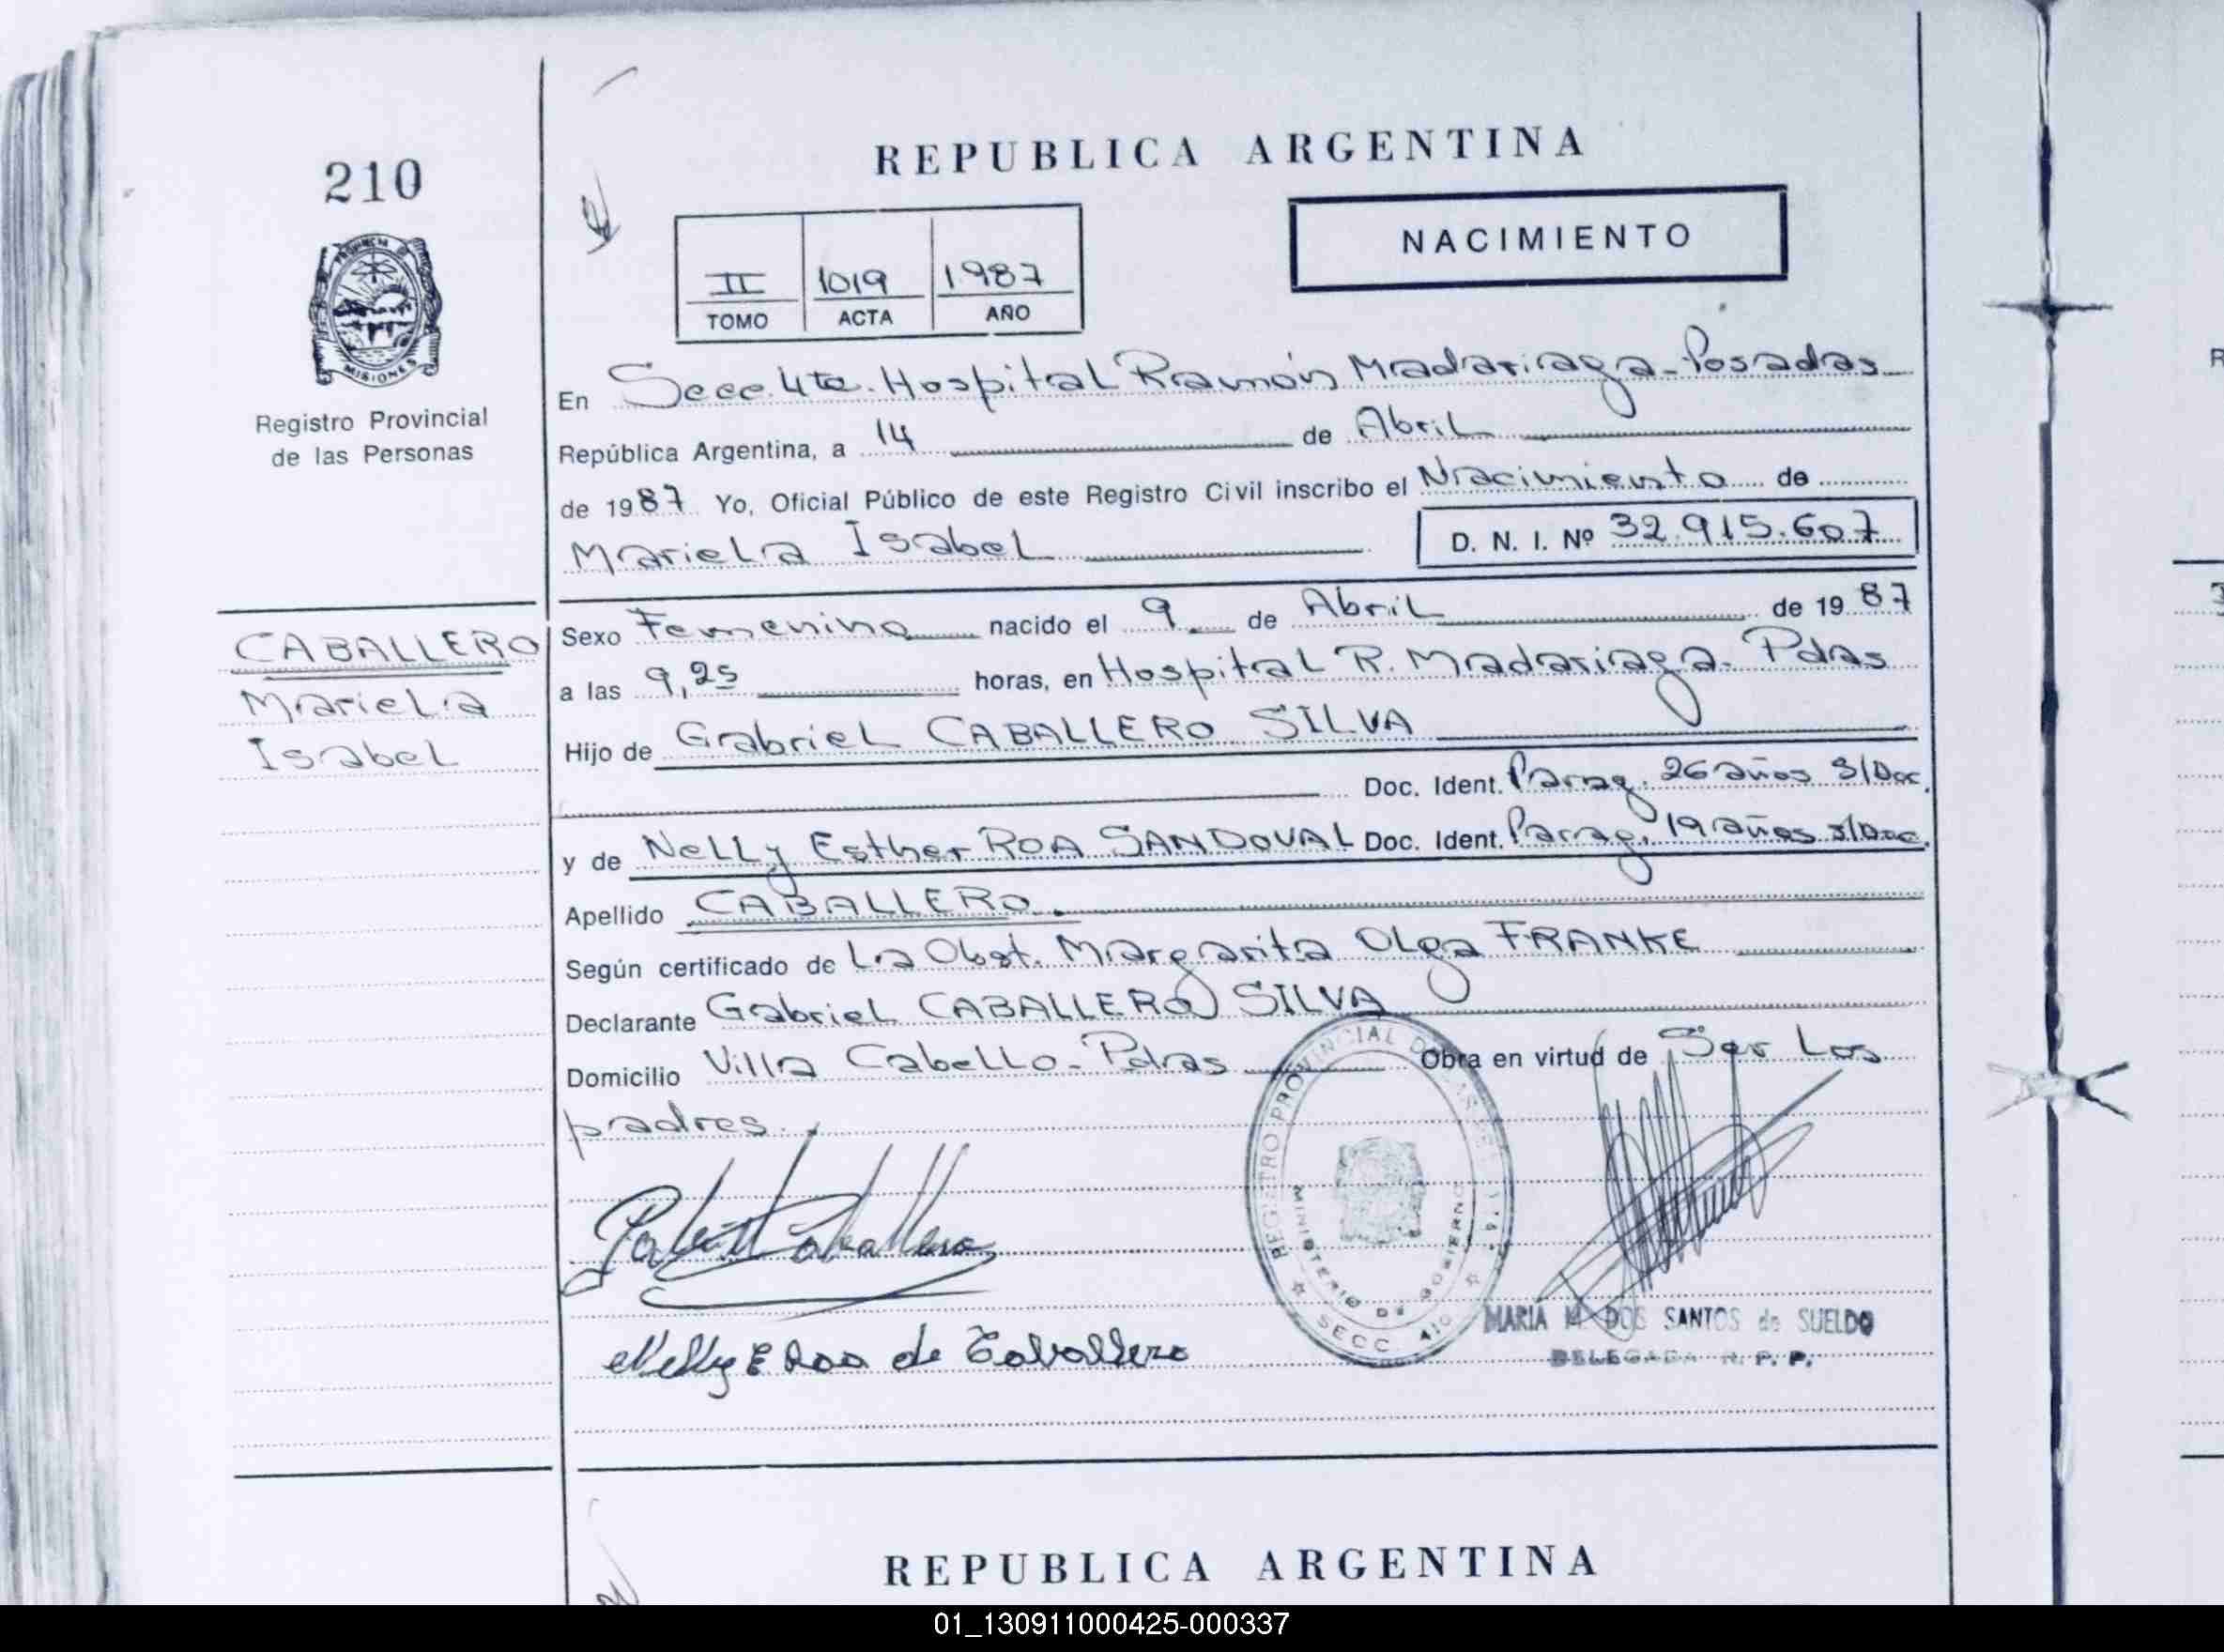 210
PROVINCIA DE
MISIONES
Registro Provincial
de las Personas
CABALLERO
Mariela
Isabel
REPUBLICA ARGENTINA
NACIMIENTO
II 1019 1987
TOMO ACTA AÑO
En Secc. 4ta. Hospital Ramón Madariaga - Posadas
República Argentina, a 14 de Abril
de 1987 Yo, Oficial Público de este Registro Civil inscribo el Nacimiento de
Mariela Isabel D. N. I. Nº 32.915.607
Sexo Femenino nacido el 9 de Abril de 1987
a las 9,25 horas, en Hospital R. Madariaga - Pdas
Hijo de Gabriel CABALLERO SILVA
Doc. Ident. Parag. 26 años S/Doc.
y de Nelly Esther ROA SANDOVAL Doc. Ident. Parag. 19 años S/Doc.
Apellido CABALLERO.
Según certificado de La Obst. Margarita Olga FRANKE
Declarante Gabriel CABALLERO SILVA
Domicilio Villa Cabello - Pdas Obra en virtud de Ser Los
padres.
REGISTRO PROVINCIAL DE LAS
MINISTERIO DE GOBIERNO
SECC 4
Nelly E Roa de Caballero
MARIA M. DOS SANTOS de SUELDO
DELEGADA R. P. P.
REPUBLICA ARGENTINA
01_130911000425-000337